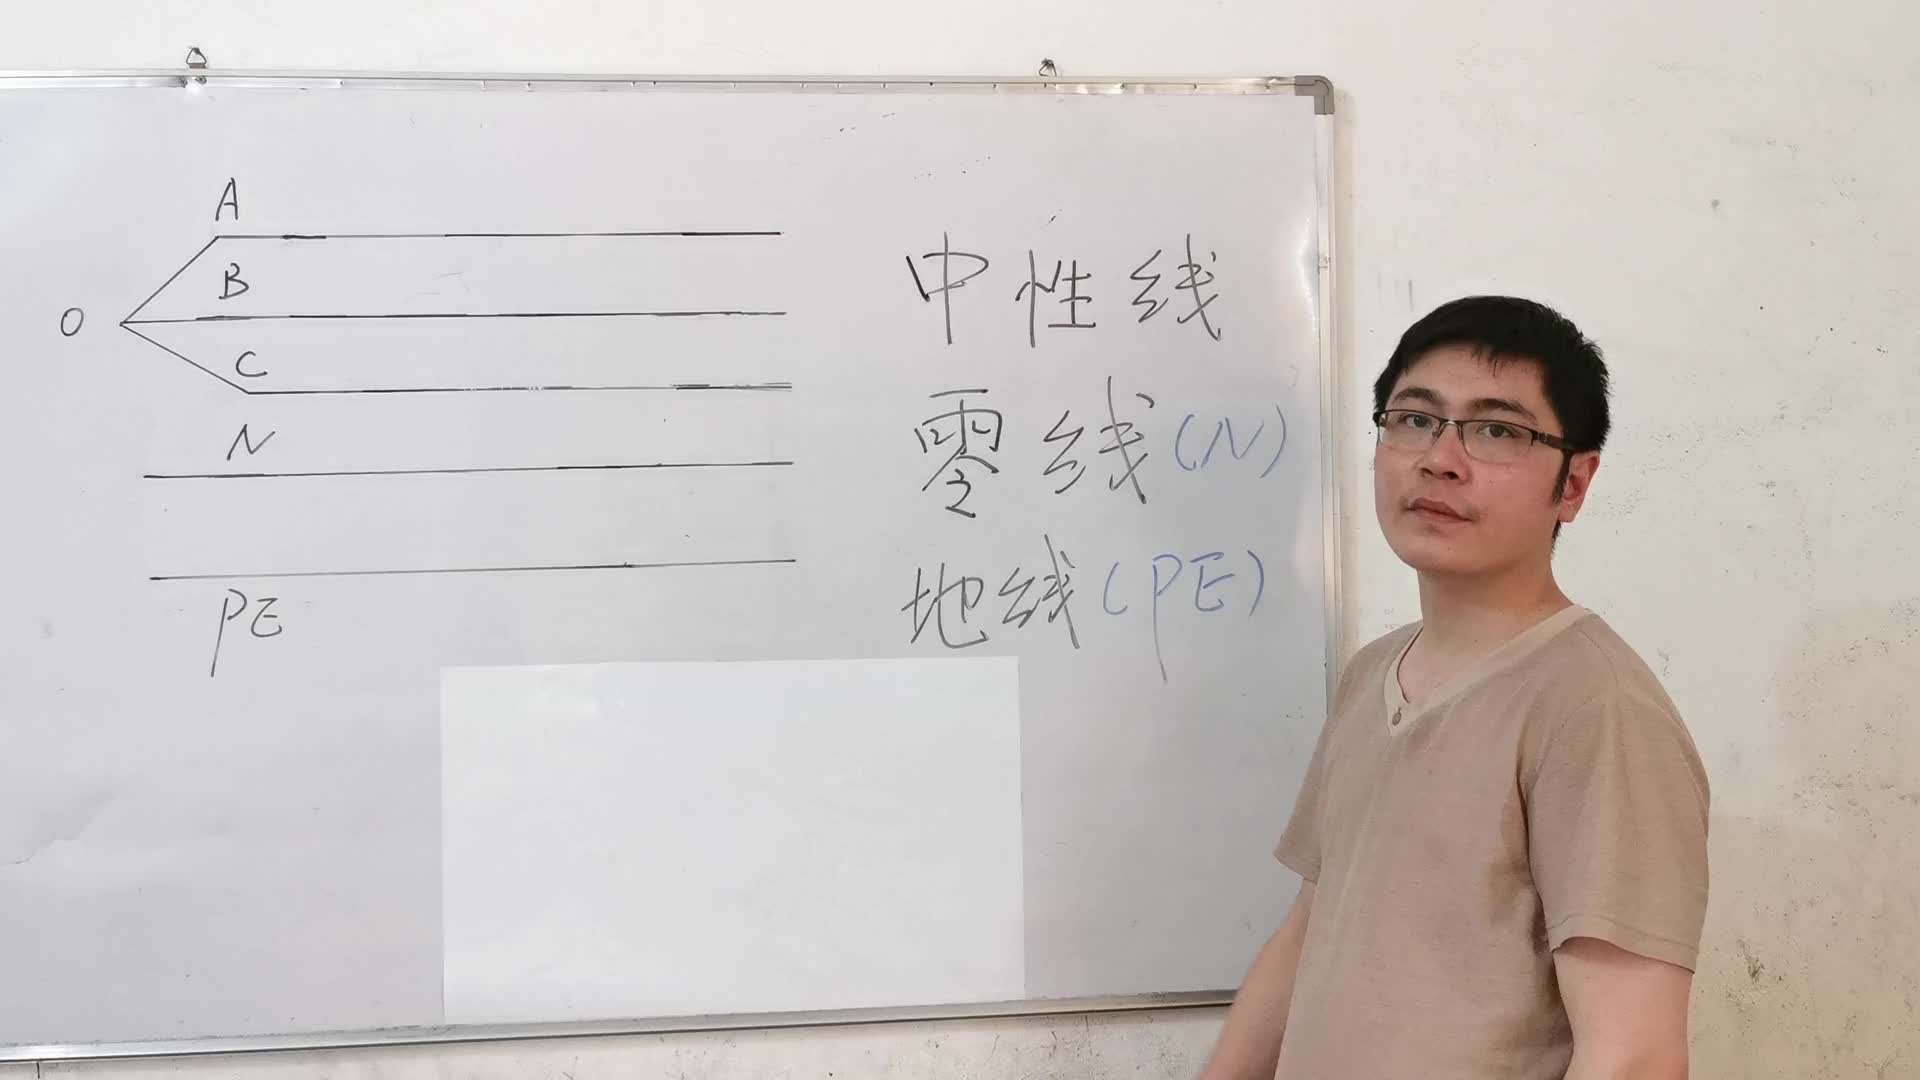 A
B
O
C
N
PE
中性线
零线(N)
地线(PE)